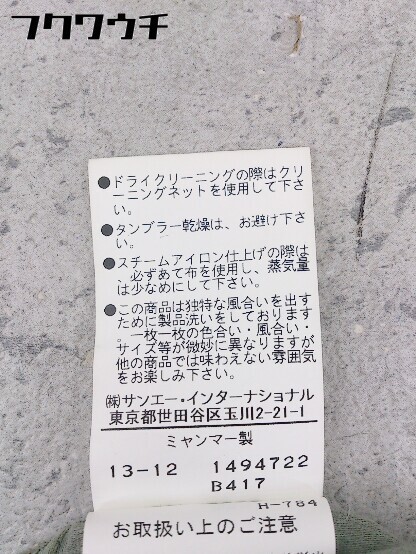 フクワウチ
●ドライクリーニングの際はクリ
ーニングネットを使用して下さ
い。
●タンブラー乾燥は、お避け下さ
い。
●スチームアイロン仕上げの際は
、必ずあて布を使用し、蒸気量
は少なめにして下さい。
●この商品は独特な風合いを出す
ために製品洗いをしております
。一枚一枚の色合い・風合い・
サイズ等が微妙に異なりますが
他の商品では味わえない雰囲気
をお楽しみ下さい。
㈱サンエー・インターナショナル
東京都世田谷区玉川2-21-1
ミャンマー製
13-12 1494722
B417
H-784
お取扱い上のご注意